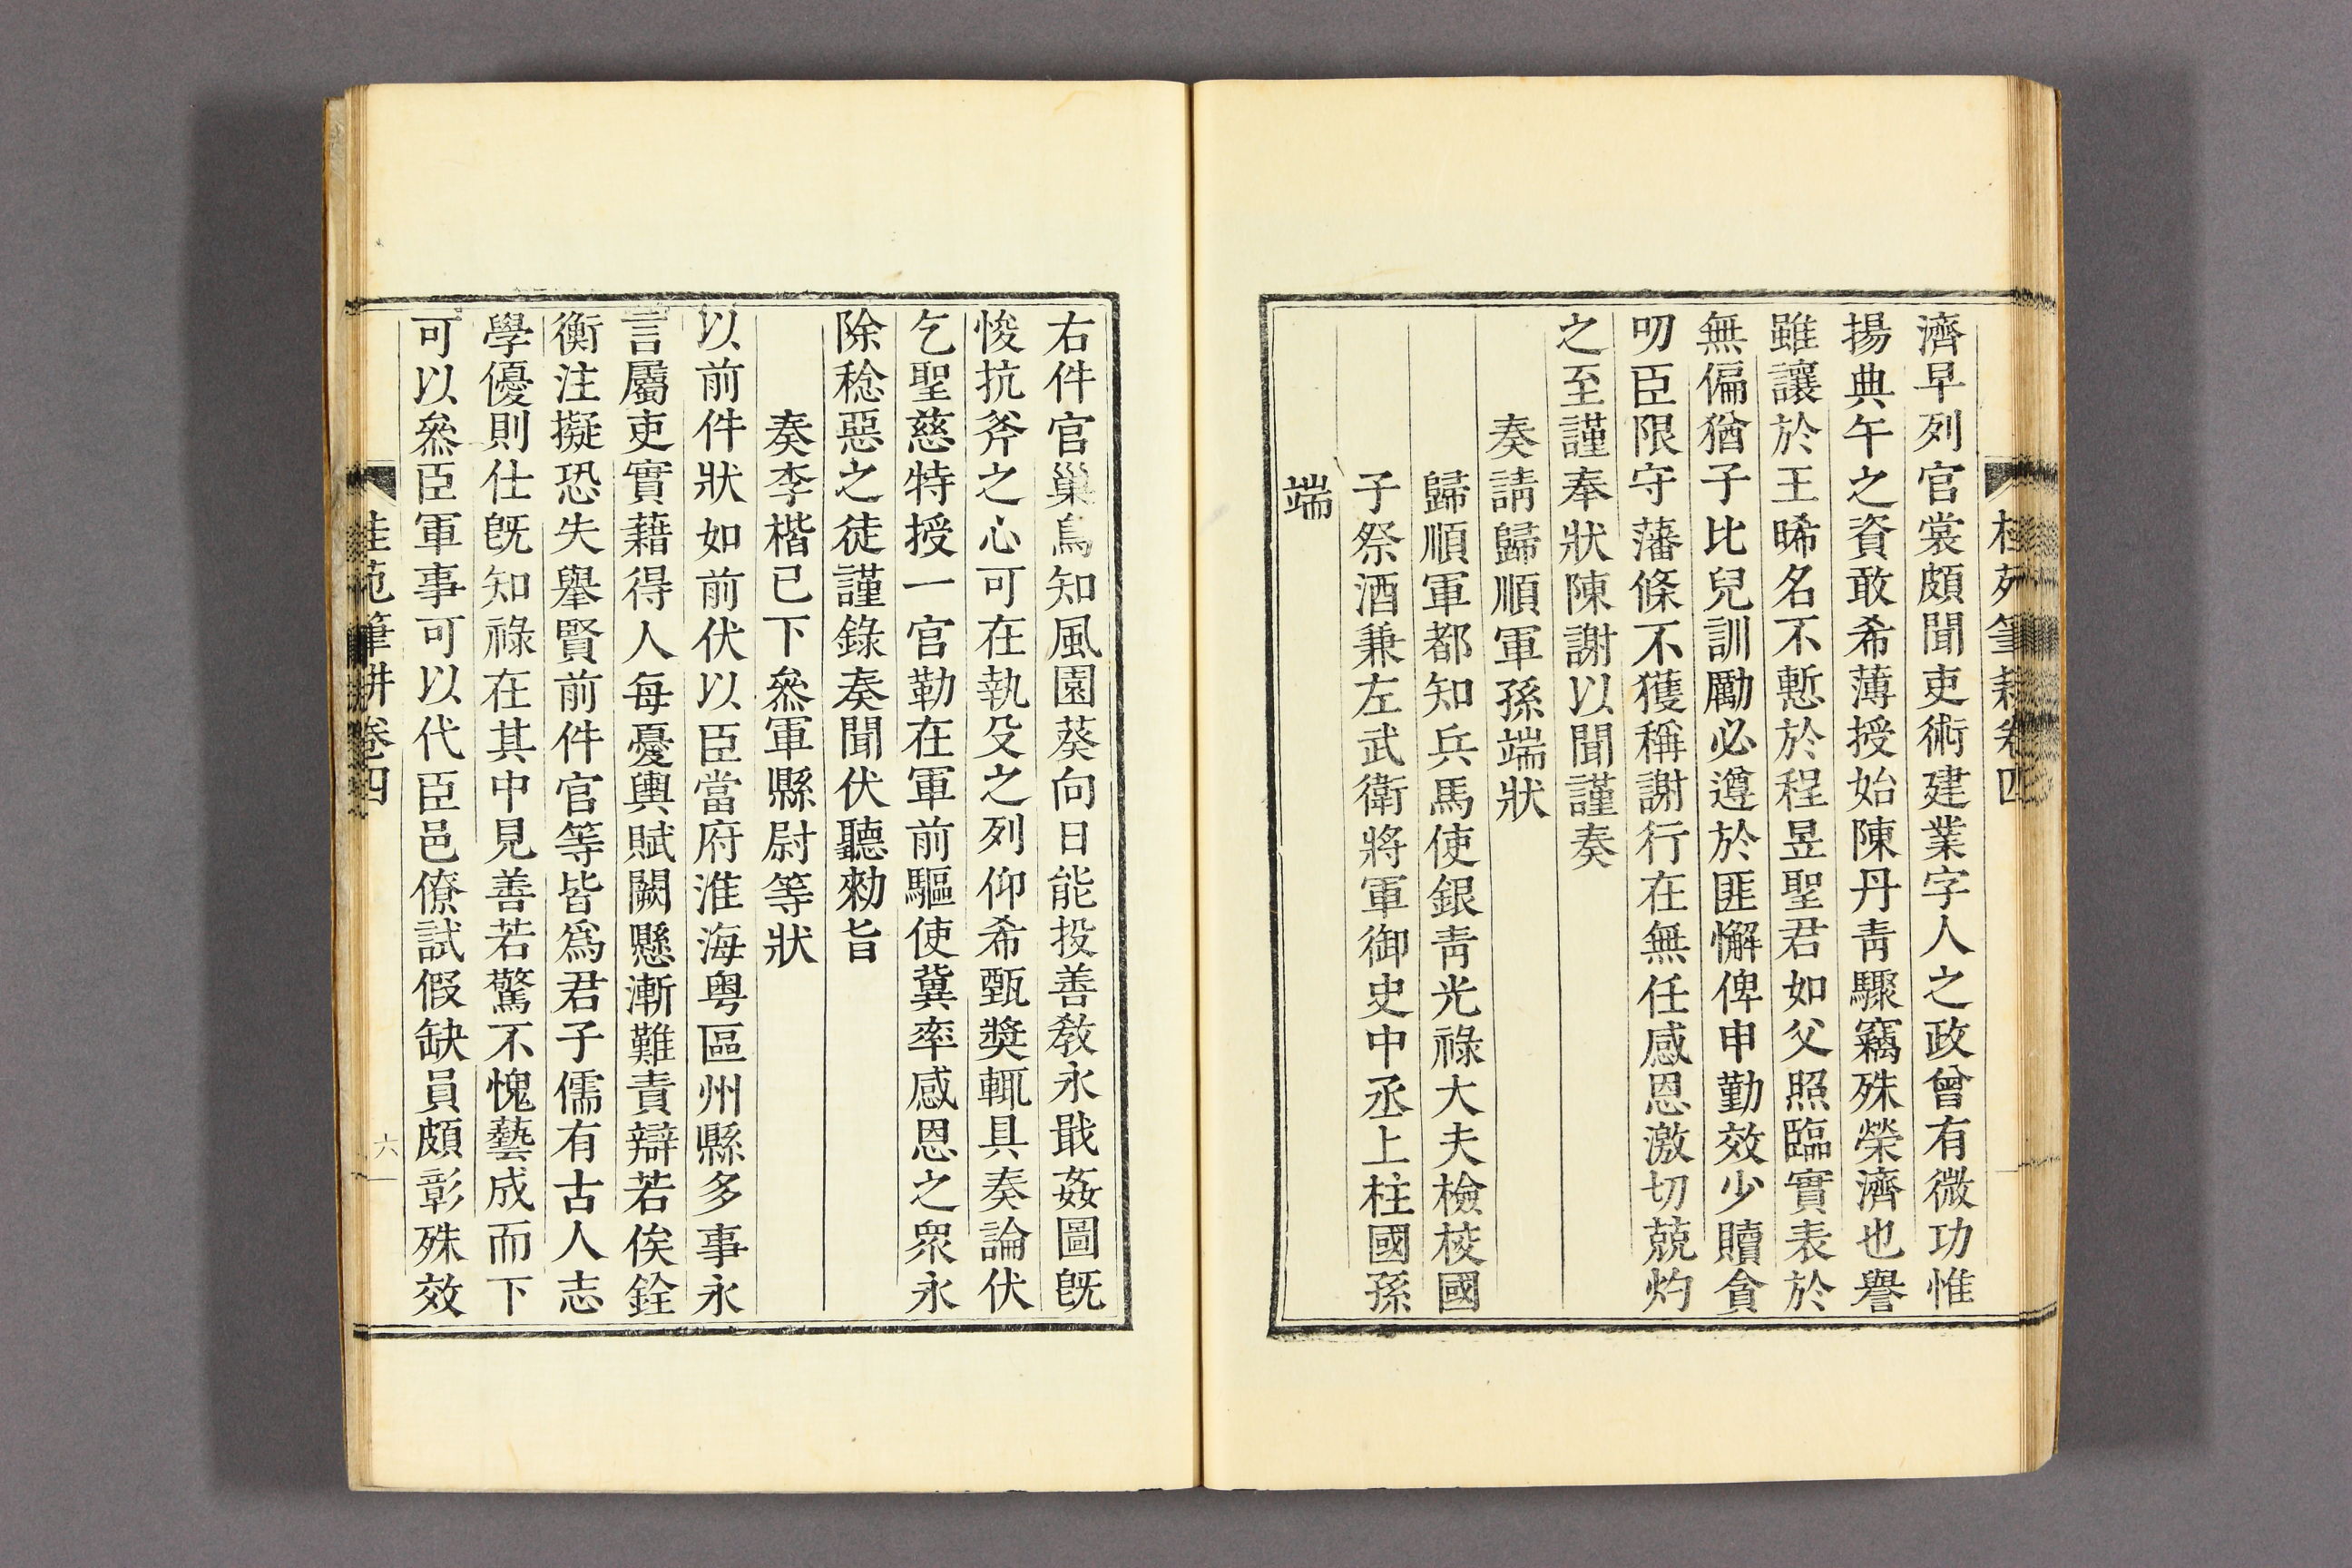 桂苑筆耕卷四
濟早列官裳頗聞吏術建業字人之政曾有微功惟
揚典午之資敢希薄授始陳丹靑驟竊殊榮濟也譽
雖讓於王晞名不慙於程昱聖君如父照臨實表於
無偏猶子比兒訓勵必遵於匪懈俾申勤效少贖貪
叨臣限守藩條不獲稱謝行在無任感恩激切兢灼
之至謹奉狀陳謝以聞謹奏
奏請歸順軍孫端狀
歸順軍都知兵馬使銀靑光祿大夫檢校國
子祭酒兼左武衛將軍御史中丞上柱國孫
端
右件官巢鳥知風園葵向日能投善教永戢姦圖旣
悛抗斧之心可在執殳之列仰希甄獎輒具奏論伏
乞聖慈特授一官勒在軍前驅使冀率感恩之衆永
除稔惡之徒謹錄奏聞伏聽勑旨
奏李楷已下叅軍縣尉等狀
以前件狀如前伏以臣當府淮海粤區州縣多事永
言屬吏實藉得人每憂輿賦闕懸漸難責辯若俟銓
衡注擬恐失舉賢前件官等皆爲君子儒有古人志
學優則仕旣知祿在其中見善若驚不愧藝成而下
可以叅臣軍事可以代臣邑僚試假缺員頗彰殊效
桂苑筆耕卷四
六